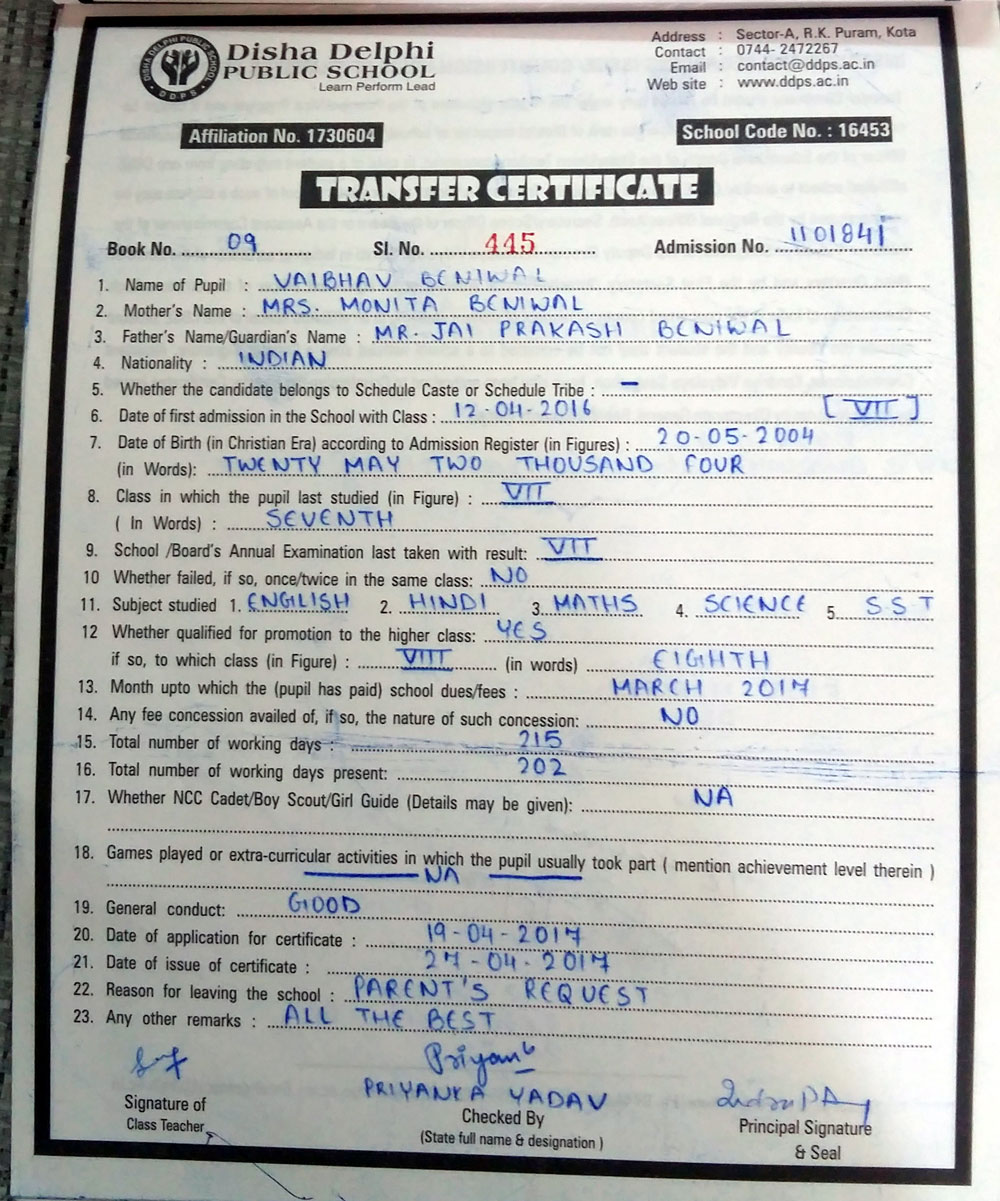 DISHA DELPHI PUBLIC SCHOOL
DDPS
Disha Delphi
PUBLIC SCHOOL
Learn Perform Lead
Address : Sector-A, R.K. Puram, Kota
Contact : 0744- 2472267
Email : contact@ddps.ac.in
Web site : www.ddps.ac.in
Affiliation No. 1730604
School Code No. : 16453
TRANSFER CERTIFICATE
Book No. 09 Sl. No. 445 Admission No. 1101841
1. Name of Pupil : VAIBHAV BENIWAL
2. Mother's Name : MRS. MONITA BENIWAL
3. Father's Name/Guardian's Name : MR. JAI PRAKASH BENIWAL
4. Nationality : INDIAN
5. Whether the candidate belongs to Schedule Caste or Schedule Tribe : –
6. Date of first admission in the School with Class : 12-04-2016 [VII]
7. Date of Birth (in Christian Era) according to Admission Register (in Figures) : 20-05-2004
(in Words): TWENTY MAY TWO THOUSAND FOUR
8. Class in which the pupil last studied (in Figure) : VII
( In Words) : SEVENTH
9. School /Board's Annual Examination last taken with result: VII
10 Whether failed, if so, once/twice in the same class: NO
11. Subject studied 1. ENGLISH 2. HINDI 3. MATHS 4. SCIENCE 5. S.S.T
12 Whether qualified for promotion to the higher class: YES
if so, to which class (in Figure) : VIII (in words) EIGHTH
13. Month upto which the (pupil has paid) school dues/fees : MARCH 2017
14. Any fee concession availed of, if so, the nature of such concession: NO
15. Total number of working days : 215
16. Total number of working days present: 202
17. Whether NCC Cadet/Boy Scout/Girl Guide (Details may be given): NA
18. Games played or extra-curricular activities in which the pupil usually took part ( mention achievement level therein )
NA
19. General conduct: GOOD
20. Date of application for certificate : 19-04-2017
21. Date of issue of certificate : 27-04-2017
22. Reason for leaving the school : PARENT'S REQUEST
23. Any other remarks : ALL THE BEST
PRIYANKA YADAV
Signature of
Class Teacher
Checked By
(State full name & designation )
Principal Signature
& Seal